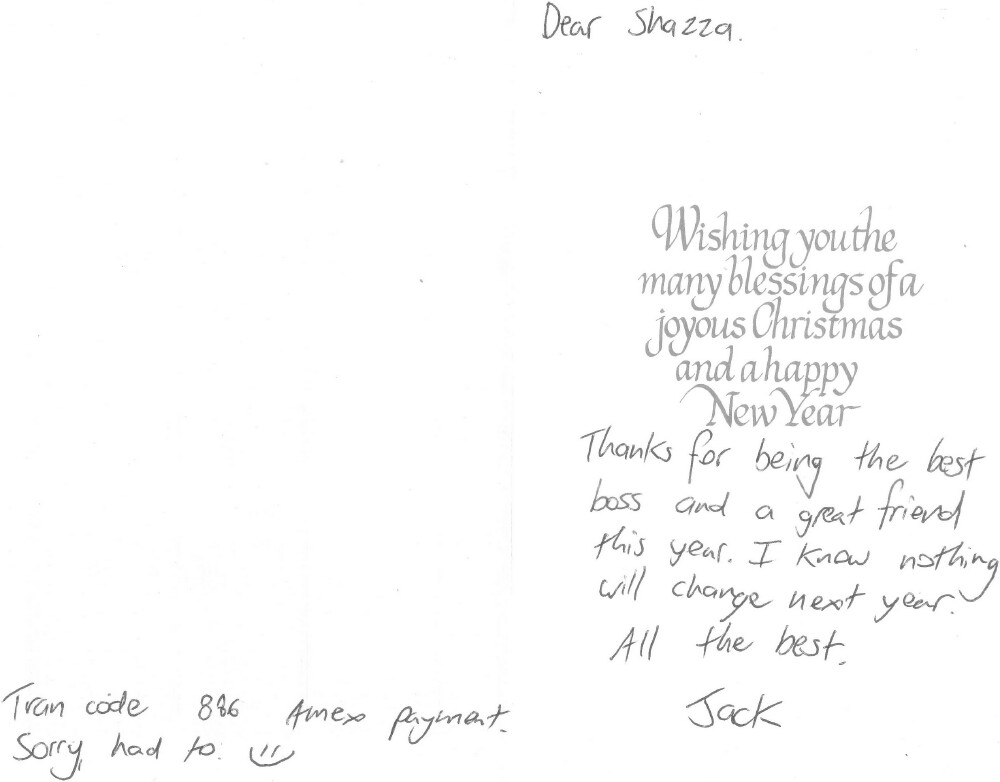 Dear Shazza.
Wishing you the
many blessings of a
joyous Christmas
and a happy
New Year
Thanks for being the best
boss and a great friend
this year. I know nothing
will change next year.
All the best.
Jack
Tran code 886 Amex payment.
Sorry, had to. :)